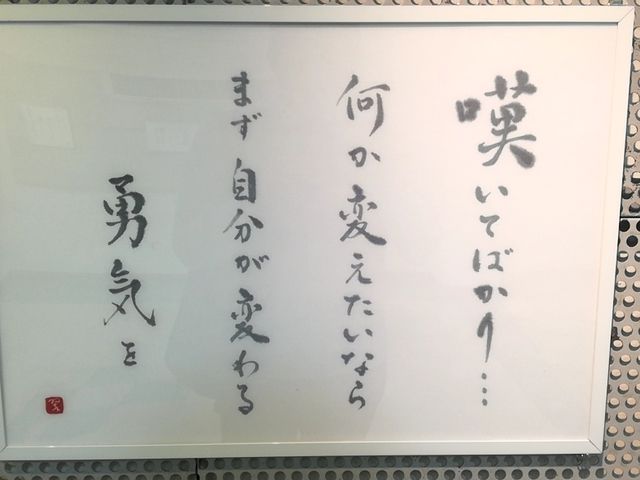 嘆いてばかり…
何か変えたいなら
まず自分が変わる
勇気を